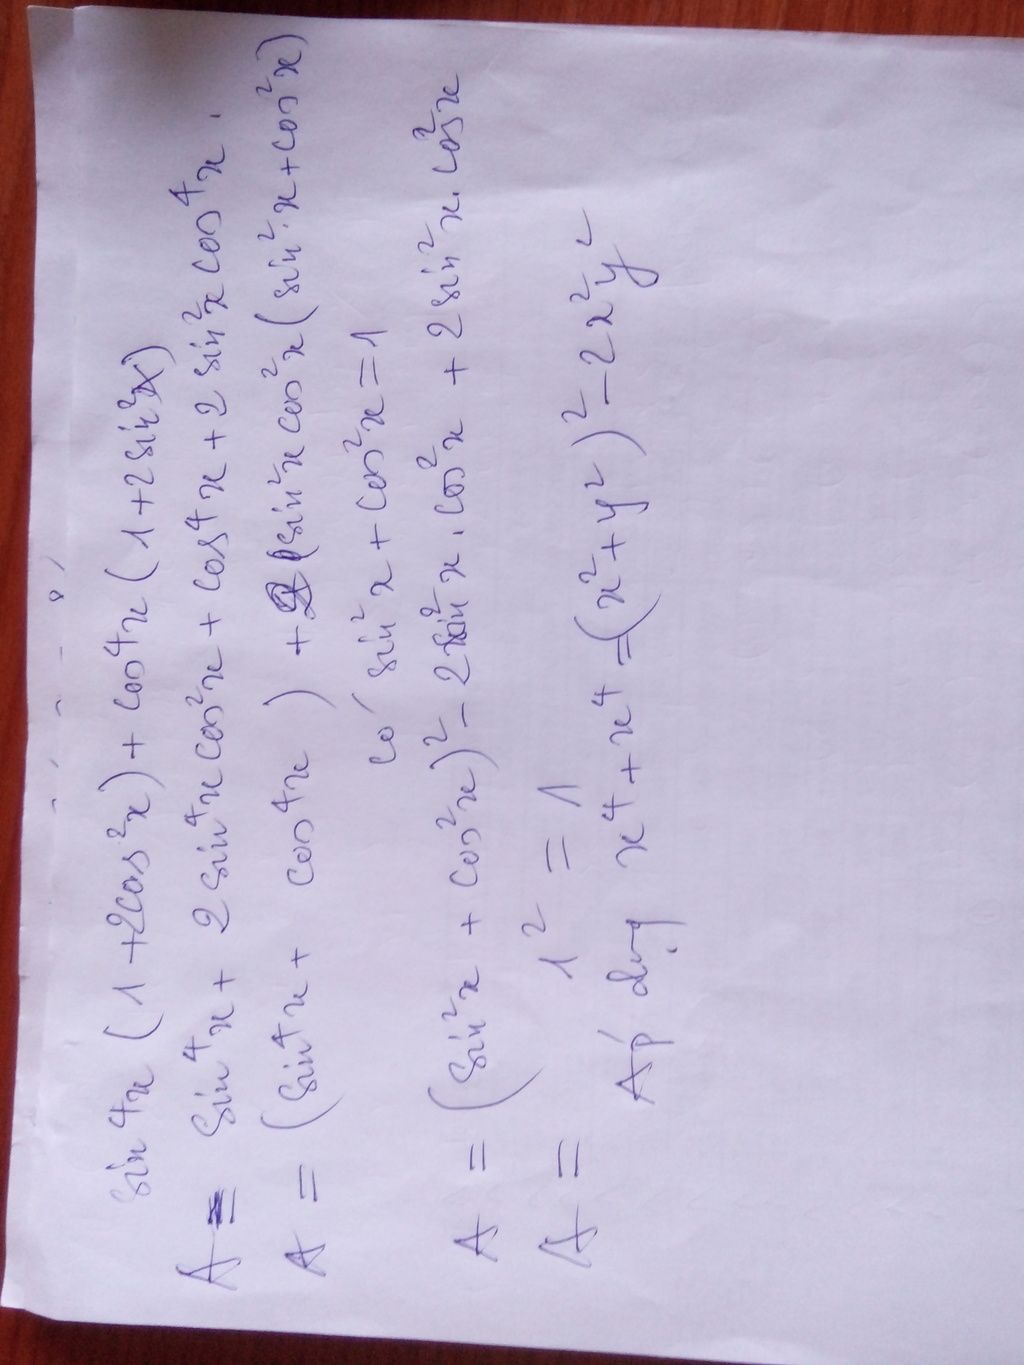 sin⁴x (1 + 2cos²x) + cos⁴x (1 + 2sin²x)
A = sin⁴x + 2 sin⁴x cos²x + cos⁴x + 2 sin²x cos⁴x.
A = (sin⁴x + cos⁴x) + 2 (sin²x cos²x (sin²x + cos²x)
có sin²x + cos²x = 1
A = (sin²x + cos²x)² - 2 sin²x . cos²x + 2 sin²x . cos²x
A = 1² = 1
Áp dụng x⁴ + x⁴ = (x² + y²)² - 2x²y²